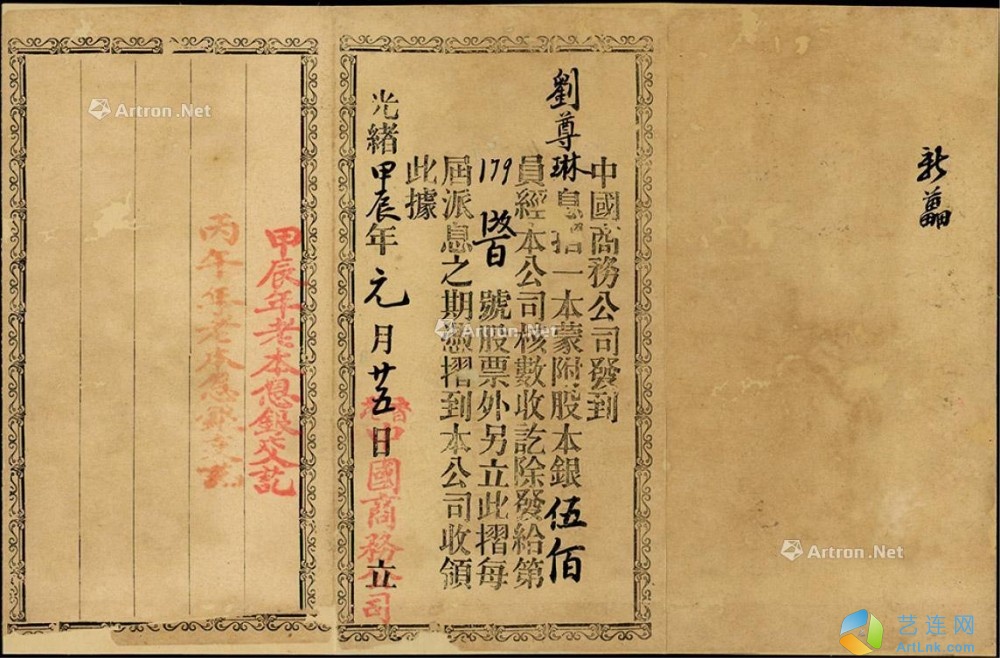 新
中國商務公司發到
劉尊琳息摺一本蒙附股本銀伍佰
員經本公司核數收訖除發給第
179 號股票外另立此摺每
屆派息之期憑摺到本公司收領
此據
光緒甲辰年元月廿五日立
中國商務公司
甲辰年老本息銀交訖
丙午年老本息銀交訖
Artron.Net
Artron.Net
Artron.Net
艺连网
ArtLnk.com